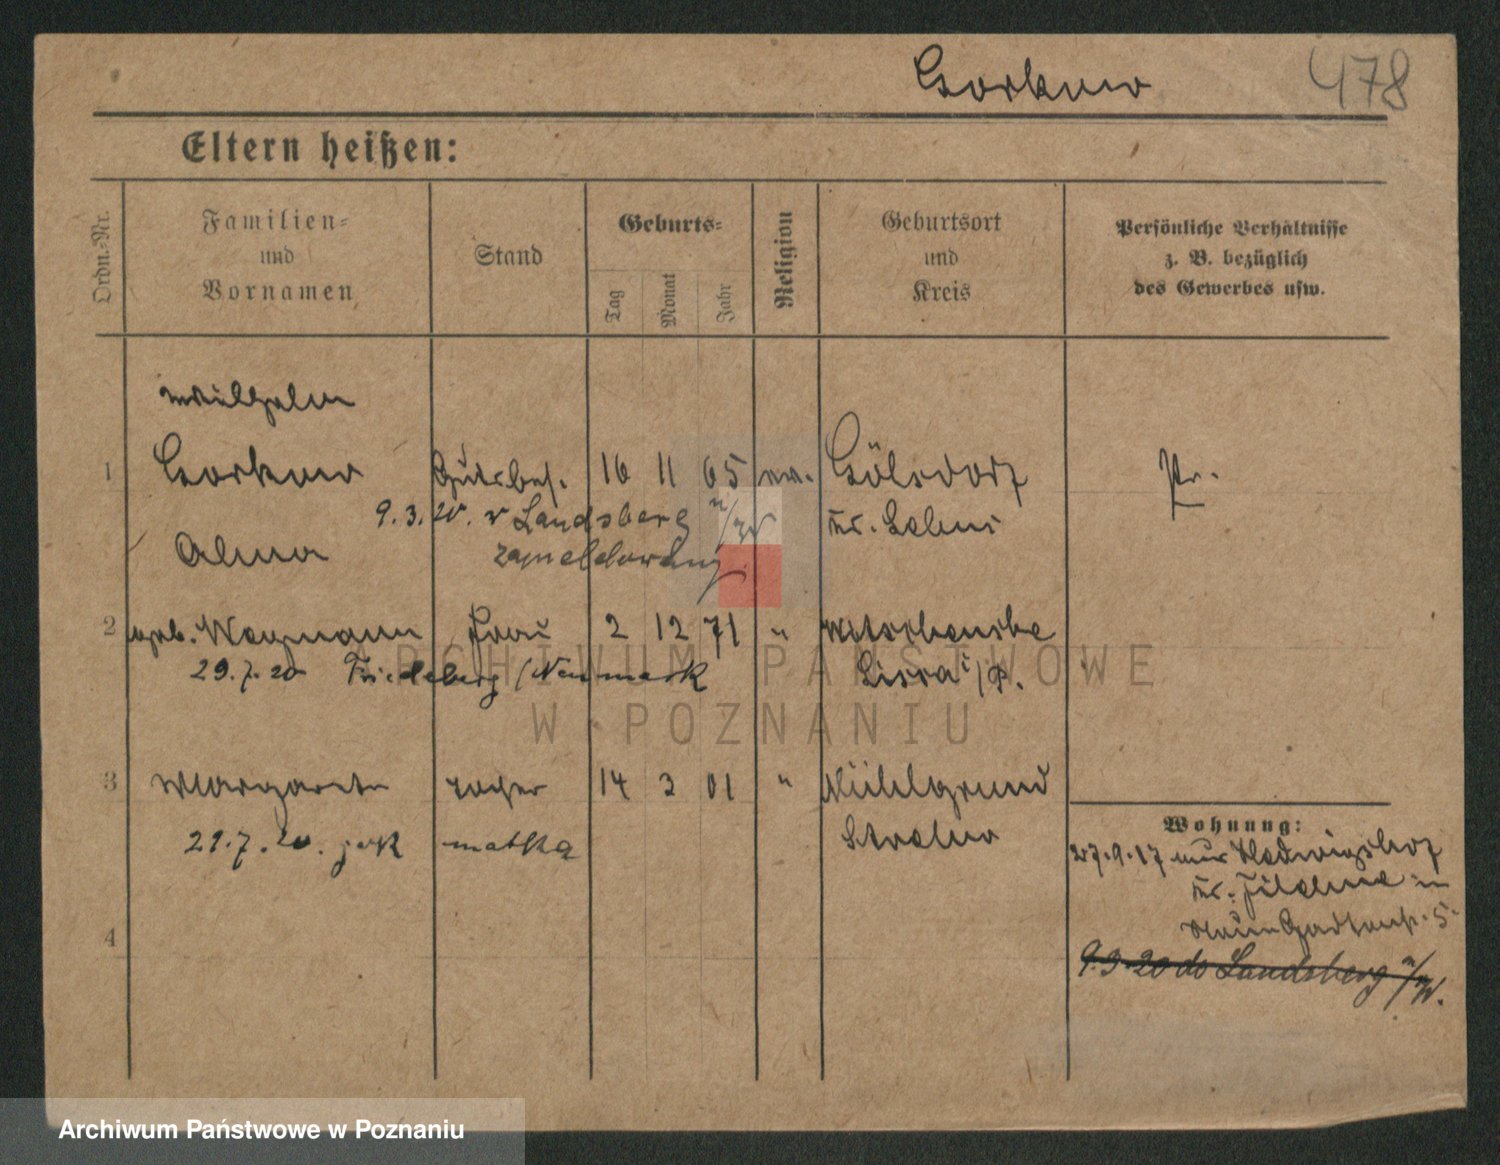 Gorknow 478
Eltern heißen:
Ordn.-Nr.
Familien-
und
Vornamen
Stand
Geburts-
Tag
Monat
Jahr
Religion
Geburtsort
und
Kreis
Persönliche Verhältnisse
z. B. bezüglich
des Gewerbes usw.
Wilhelm
1 Gutsbes. 16 11 65 ev. Gölsdorf Pr.
9.3.20. v Landsberg n/W Kr. Lebus
Alma
2 geb. Wegmann Frau 2 12 71 "
29.7.20 Friedeberg /Neumark Lissa i/P.
3 Margarete Tochter 14 3 01 " Mühlgrund
29.7.20. jak matka Strelno
Wohnung:
27.9.17 aus Hedwigshof
Kr. Filehne in
5.
4
9.3.20 do Landsberg n/W.
ARCHIWUM PAŃSTWOWE
W POZNANIU
Archiwum Państwowe w Poznaniu